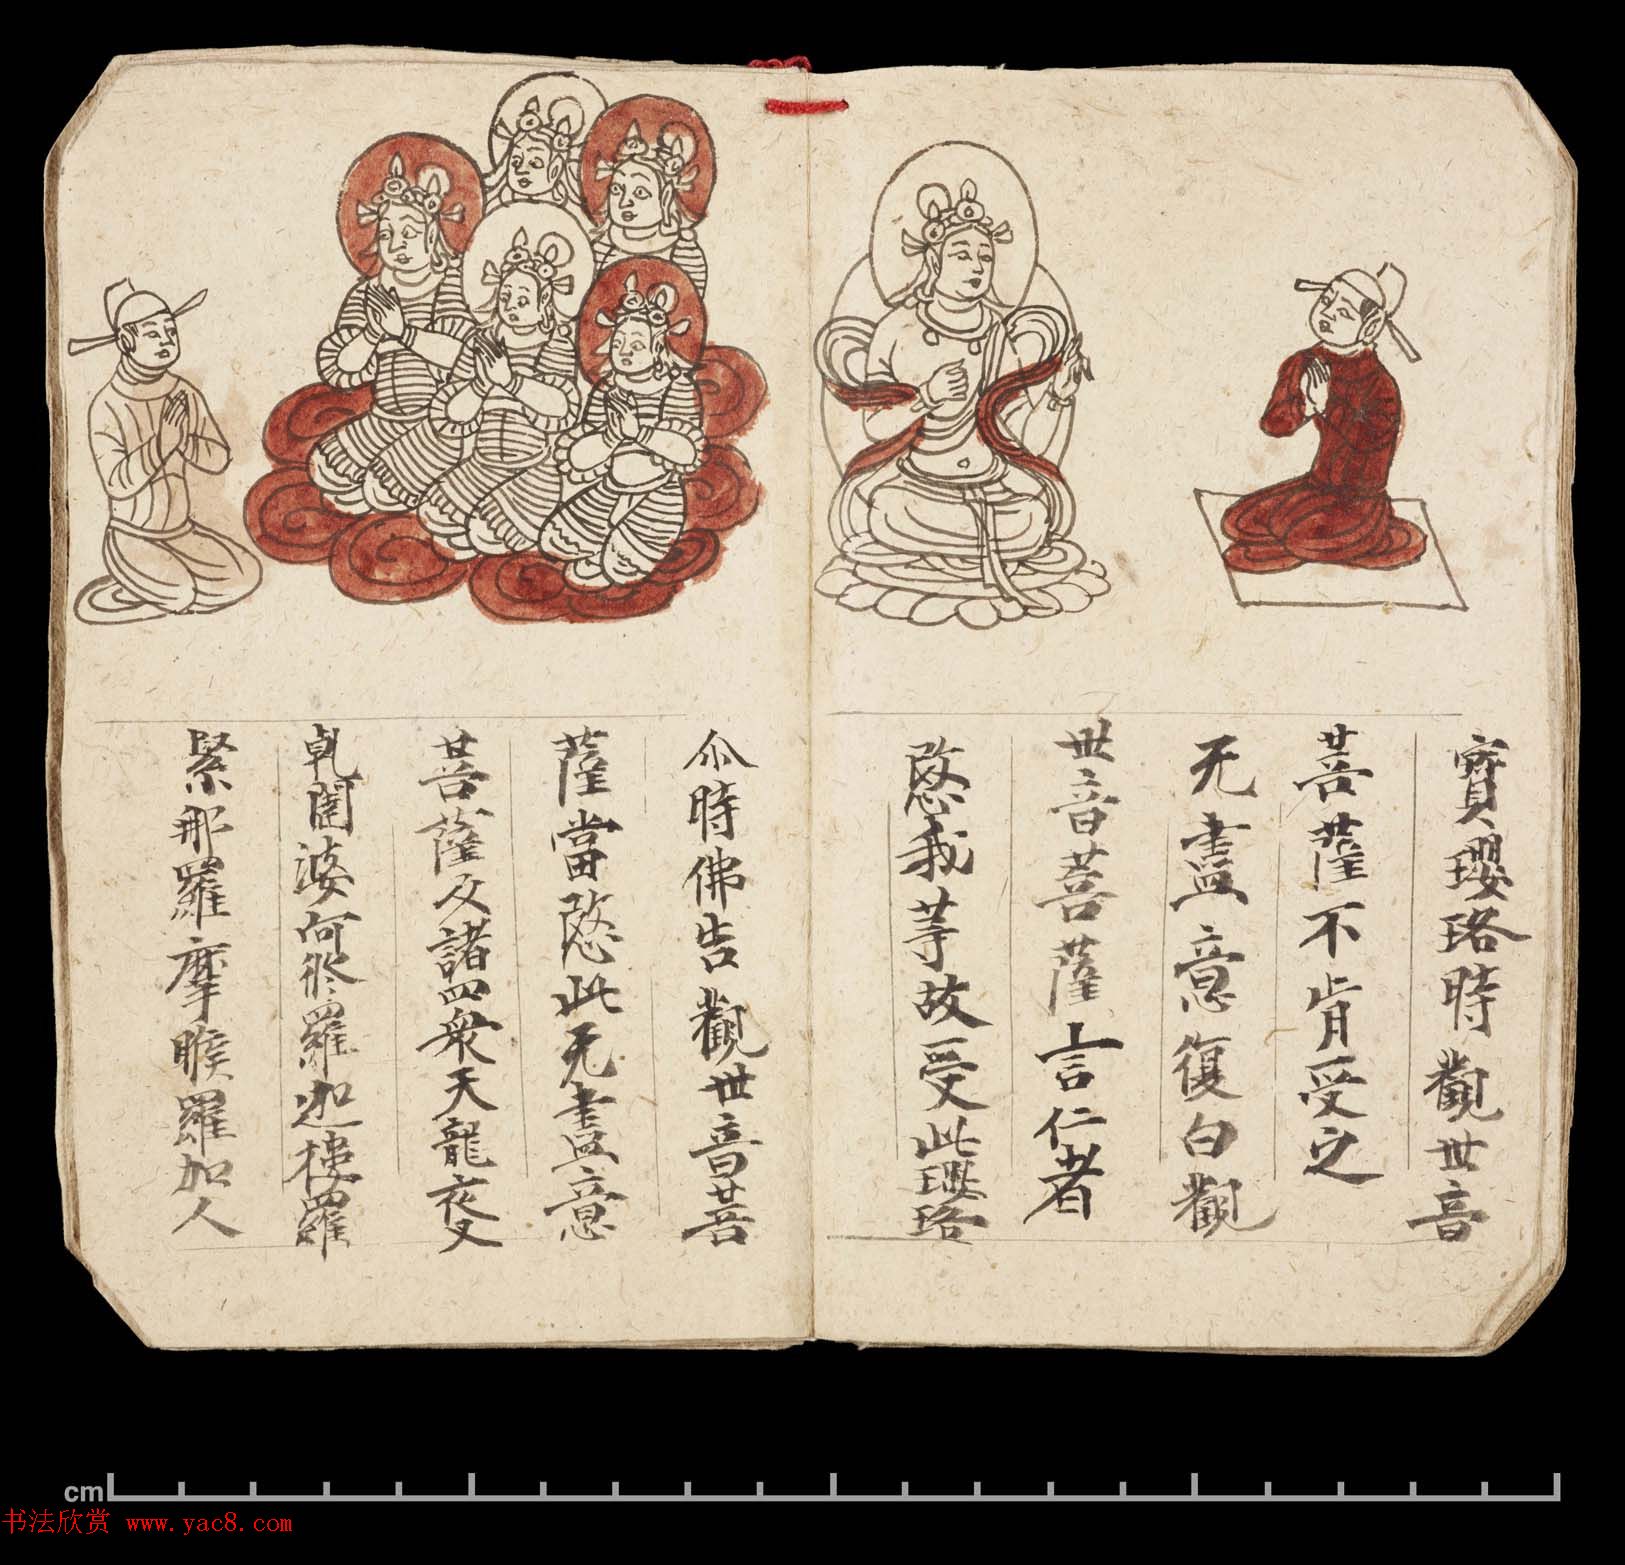 寶瓔珞時觀世音
菩薩不肯受之
无盡意復白觀
世音菩薩言仁者
愍我等故受此瓔珞
尒時佛告觀世音菩
薩當愍此无盡意
菩薩及諸四衆天龍夜叉
乹闥婆阿修羅迦樓羅
緊那羅摩睺羅加人
cm
书法欣赏 www.yac8.com